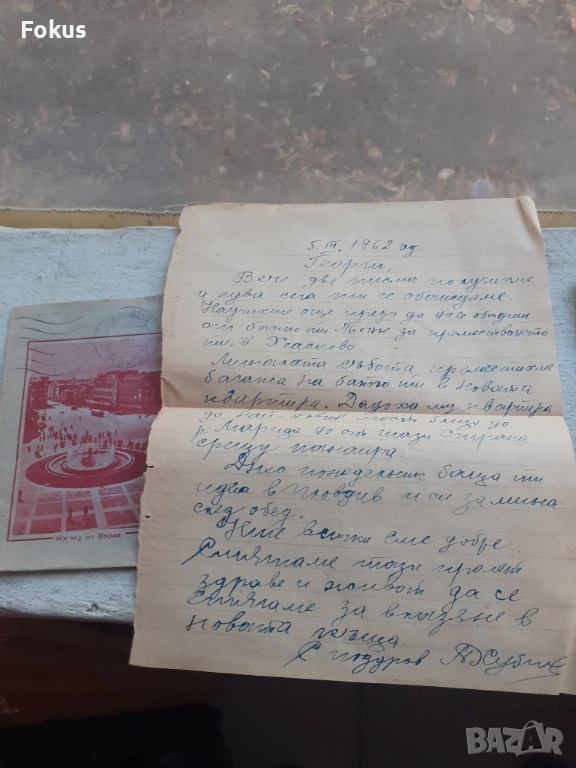 Fokus
5. III. 1962 год
Георги,
Вече две писма получихме
и едва сега ти се обаждаме.
Научихме още преди да ни се обадиш
от батко ти за преместването
ти в Хасково.
Миналата събота преместихме
багажа на батко ти в новата
квартира. Дадоха му квартира
до най-новия мост близо до
р. Марица но от тази страна
срещу панаира.
Днес понеделник баща ти
идва в Пловдив и си замина
след обед.
Ние всички сме добре.
Смятаме тази пролет
здраве и живот да се
стягаме за влизане в
новата къща.
С поздрав
Изглед от Варна
BAZAR